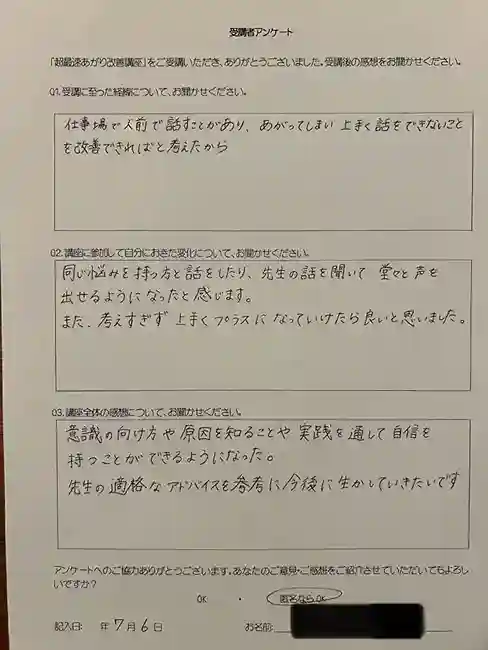 受講者アンケート
「超最速あがり改善講座」をご受講いただき、ありがとうございました。受講後の感想をお聞かせください。
01.受講に至った経緯について、お聞かせください。
仕事場で人前で話すことがあり、あがってしまい上手く話をできないこと
を改善できればと考えたから
02.講座に参加して自分におきた変化について、お聞かせください。
同じ悩みを持つ方と話をしたり、先生の話を聞いて堂々と声を
出せるようになったと感じます。
また、考えすぎず上手くプラスになっていけたら良いと思いました。
03.講座全体の感想について、お聞かせください。
意識の向け方や原因を知ることや実践を通して自信を
持つことができるようになった。
先生の適格なアドバイスを参考に今後に生かしていきたいです
アンケートへのご協力ありがとうございます。あなたのご意見・ご感想をご紹介させていただいてもよろし
いですか?
OK ・ 匿名ならOK
記入日: 年 7月 6日 お名前: